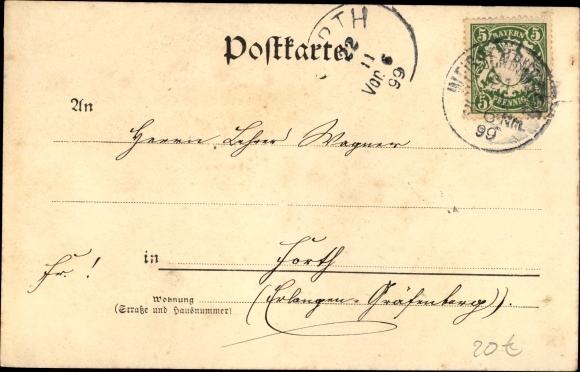 FORTH
22
11
Vor. 6
99
Postkarte
5 BAYERN 5
5 PFENNIG 5
Nm.
99
An
Herrn Lehrer Wagner
in Forth
Fr!
Wohnung
(Straße und Hausnummer)
(Erlangen-Gräfenberg).
20€